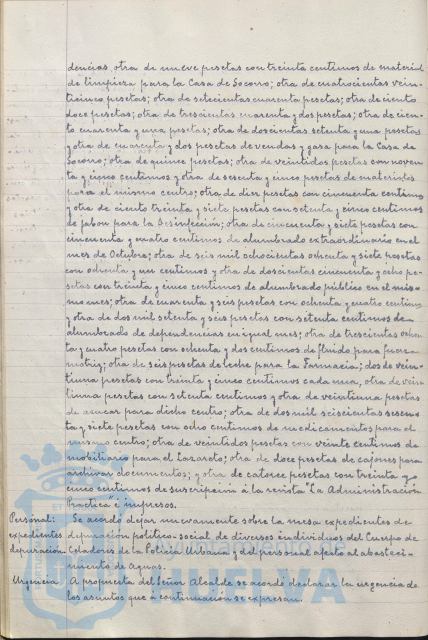 dencias, otra de nueve pesetas con treinta centimos de material
de limpieza para la Casa de Socorro; otra de cuatrocientas vein-
ticinco pesetas; otra de setecientas cuarenta pesetas; otra de ciento
doce pesetas; otra de trescientas cuarenta y dos pesetas; otra de cien-
to cuarenta y una pesetas; otra de doscientas setenta y una pesetas
y otra de cuarenta y dos pesetas de vendas y gasa para la Casa de
Socorro; otra de quince pesetas; otra de veintidos pesetas con noven-
ta y cinco centimos y otra de sesenta y cinco pesetas de materiales
para el mismo centro; otra de diez pesetas con cincuenta centimos
y otra de ciento treinta y siete pesetas con setenta y cinco centimos
de jabon para la Desinfección; otra de cincuenta y siete pesetas con
cincuenta y cuatro centimos de alumbrado extraordinario en el
mes de Octubre; otra de seis mil ochocientas ochenta y siete pesetas
con ochenta y un centimos y otra de doscientas cincuenta y ocho pe-
setas con treinta y cinco centimos de alumbrado público en el mis-
mo mes; otra de cuarenta y seis pesetas con ochenta y cuatro centimos
y otra de dos mil setenta y seis pesetas con setenta centimos de
alumbrado de dependencias en igual mes; otra de trescientas ochen-
ta y cuatro pesetas con ochenta y dos centimos de fluido para fuerza
motriz; otra de seis pesetas de leche para la Farmacia; dos de vein-
tiuna pesetas con treinta y cinco centimos cada una, otra de vein-
tiuna pesetas con setenta centimos y otra de veintiuna pesetas
de azucar para dicho centro; otra de dos mil seiscientas sesen-
ta y siete pesetas con ocho centimos de medicamentos para el
mismo centro; otra de veintidos pesetas con veinte centimos de
mobiliario para el Lazareto; otra de doce pesetas de cajones para
archivar documentos; y otra de catorce pesetas con treinta y
cinco centimos de suscripción á la revista "La Administración
Práctica" é impresos.
Personal: Se acordó dejar nuevamente sobre la mesa expedientes de
expedientes depuración politico-social de diversos individuos del Cuerpo de
depuración Celadores de la Policia Urbana y del personal afecto al abasteci-
miento de Aguas.
Urgencia A propuesta del Señor Alcalde se acordó declarar la urgencia de
los asuntos que á continuación se expresan.
HUELVA